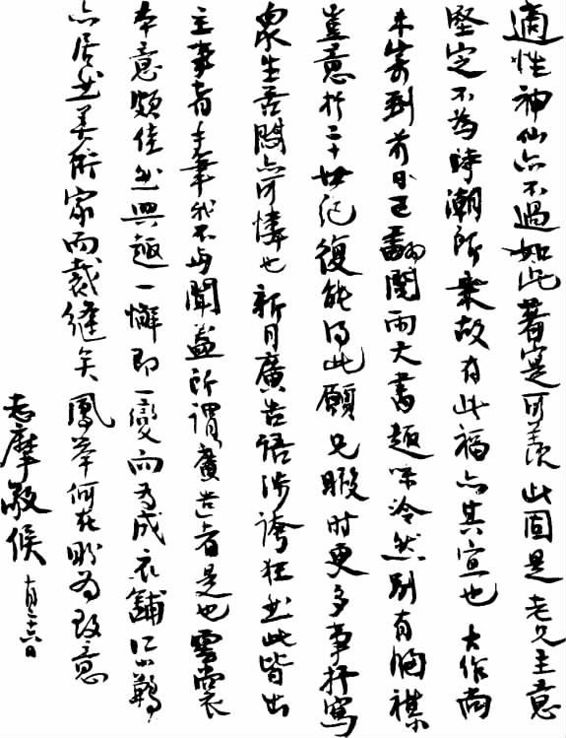 適性神仙亦不過如此著寔可羡此固是老兄主意
堅定不為時潮所棄故有此福亦其宜也 大作尚
未寄到前日已翻閱兩大書趣味冷然別有胸襟
豈意於二十世紀復能得此願兄暇时更多事抒寫
眾生吾亦可憐也 新月廣告語涉誇狂然此皆出
主事者手筆我不與聞蓋所謂廣告者是也雲裳
本意頗佳然興趣一懈即一變而為成衣鋪江小鶼
亦居然美術家而裁縫矣 鳳舉何在盼為致意
志摩敬候 十月二十六日